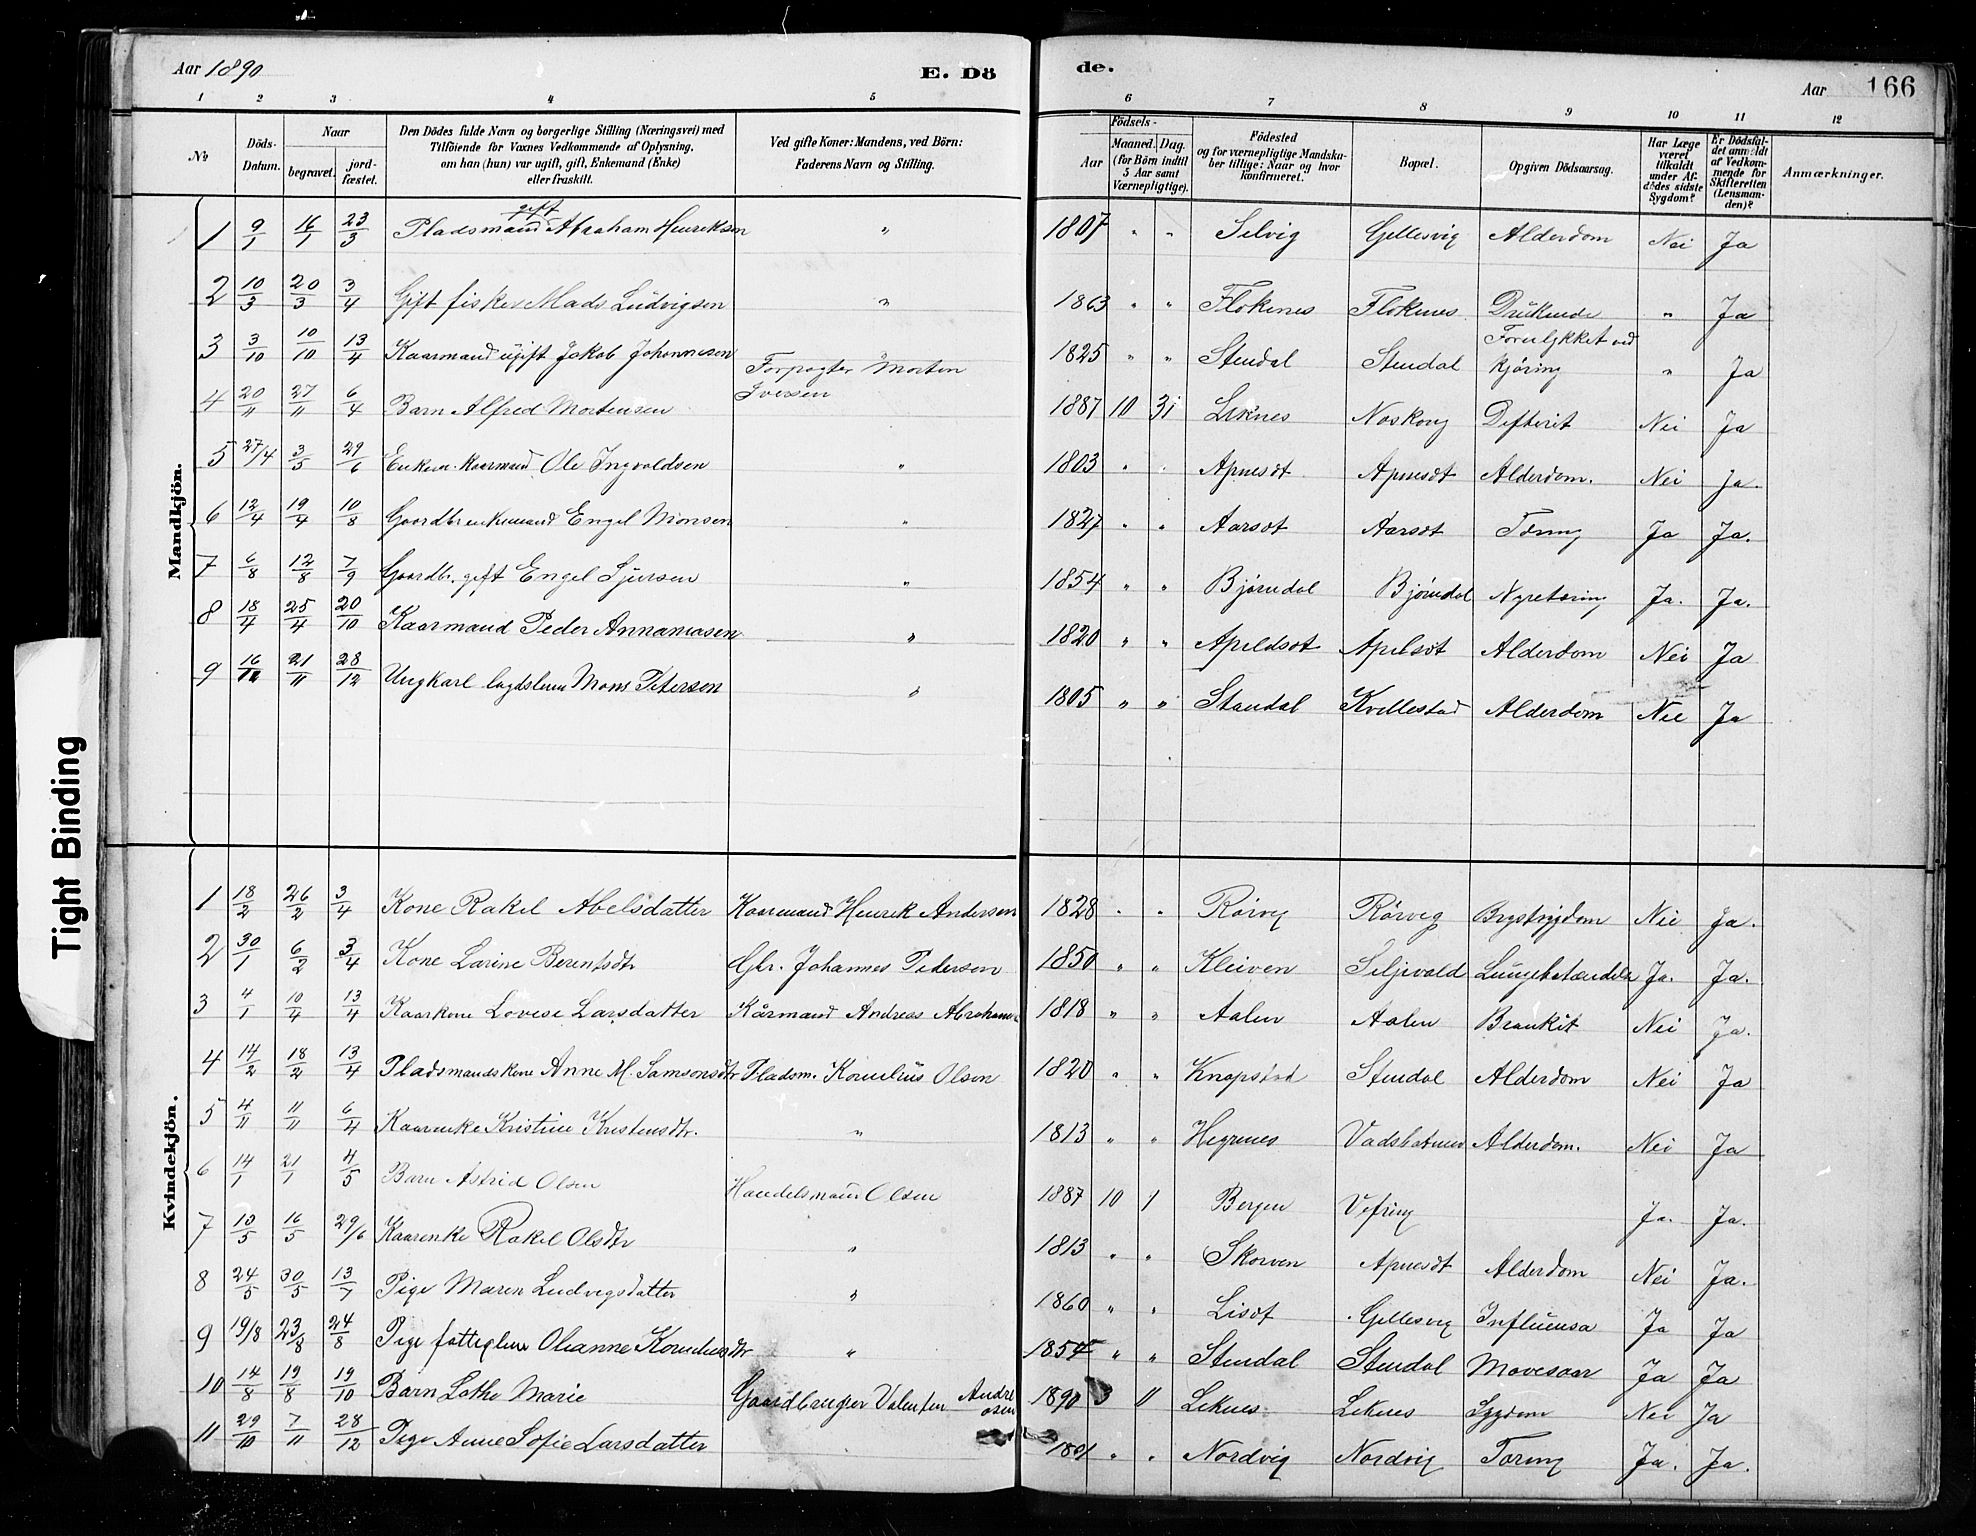 Aar 1890
E. Dö
de.
Aar 166
1 2 3 4 5 6 7 8 9 10 11 12
№
Döds-Datum.
Naar
begravet. jord-fæstet.
Den Dödes fulde Navn og borgerlige Stilling (Næringsvei) med
Tilföiende for Voxnes Vedkommende af Oplysning,
om han (hun) var ugift, gift, Enkemand (Enke)
eller fraskilt.
Ved gifte Koner: Mandens, ved Börn:
Faderens Navn og Stilling.
Födsels-
Aar Maaned. Dag.
(for Börn indtil
5 Aar samt
Værnepligtige).
Födested
og for værnepligtige Mandska-
ber tillige: Naar og hvor
konfirmeret.
Bopæl.
Opgiven Dödsaarsag.
Har Læge
været
tilkaldt
under Af-
dödes sidste
Sygdom?
Er Dödsfal-
det anmeldt
af Vedkom-
mende for
Skifteretten
(Lensman-
den)?
Anmærkninger.
Mandkjön.
1 9/1 16/1 23/3 Pladsmand gift Abraham Henriksen " 1807 " " Selvig Gjellesvig Alderdom Nei Ja
2 10/3 20/3 3/4 Gift fisker Mads Ludvigsen " 1863 " " Flokenes Flokenes Druknede " Ja
3 3/10 10/10 13/4 Kaarmand ugift Jakob Johannesen " 1825 " " Stendal Stendal Forulykket ved Kjøring " Ja
4 20/11 27/11 6/4 Barn Alfred Mortensen Forpagter Morten Iversen 1887 10 31 Leknes Noskong Difterit Nei Ja
5 27/4 3/5 29/6 Enkem. Kaarmand Ole Ingvoldsen " 1803 " " Apnesöt Apnesöt Alderdom. Nei Ja.
6 12/4 19/4 10/8 Gaardbr. enkemand Engel Monsen " 1827 " " Aarsöt Aarsöt Tæring Ja Ja.
7 6/8 12/8 7/9 Gaardbr. gift Engel Sjursen " 1854 " " Bjørndal Bjørndal Nyretæring Ja. Ja.
8 18/4 25/4 20/10 Kaarmand Peder Annaniasen " 1820 " " Apeldsöt Apelsöt Alderdom Nei Ja
9 16/11 21/11 28/12 Ungkarl lægdslem Mons Petersen " 1805 " " Standal Kvellestad Alderdom Nei Ja
Kvindekjön.
1 18/2 26/2 3/4 Kone Rakel Abelsdatter Kaarmand Henrik Andersen 1828 " " Rørvig Rørvig Brystsygdom Nei Ja.
2 30/1 6/2 3/4 Kone Larine Berentsdtr Gbr. Johannes Pedersen 1850 " " Kleiven Seljevold Lungebetændelse Ja. Ja.
3 4/1 10/4 13/4 Kaarkone Lovise Larsdatter Kårmand Andreas Abrahams 1818 " " Aalen Aalen Bronkit Nei Ja.
4 14/2 18/2 13/4 Pladsmandskone Anne M. Samsonsdtr Pladsm. Kornelius Olsen 1820 " " Knapstad Stendal Alderdom Nei Ja
5 4/11 11/11 6/4 Kaarenke Kristine Kristensdtr. " 1813 " " Hegrenes Vadsbotnen Alderdom. Nei Ja
6 14/1 21/1 4/5 Barn Astrid Olsen Handelsmand Olsen 1887 10 1 Bergen Vefring Ja. Ja.
7 10/5 16/5 29/6 Kaarenke Rakel Olsdtr " 1813 " " Skorven Apnesöt Alderdom Nei Ja.
8 24/5 30/5 13/7 Pige Maren Ludvigsdatter " 1860 " " Lisöt Gjellesvig Influensa Ja Ja
9 19/8 23/8 24/8 Pige fattiglem Olianne Korneliusdtr " 1854 " " Stendal Stendal Mavesaar Ja Ja
10 14/8 19/8 19/10 Barn Lothe Marie Gaardbruger Valentin Andreasen 1890 3 11 Leknes Leknes Sygdom Nei Ja
11 29/10 7/11 28/12 Pige Anne Sofie Larsdatter " " Nordvig Nordvig Tæring Ja. Ja.
Tight Binding